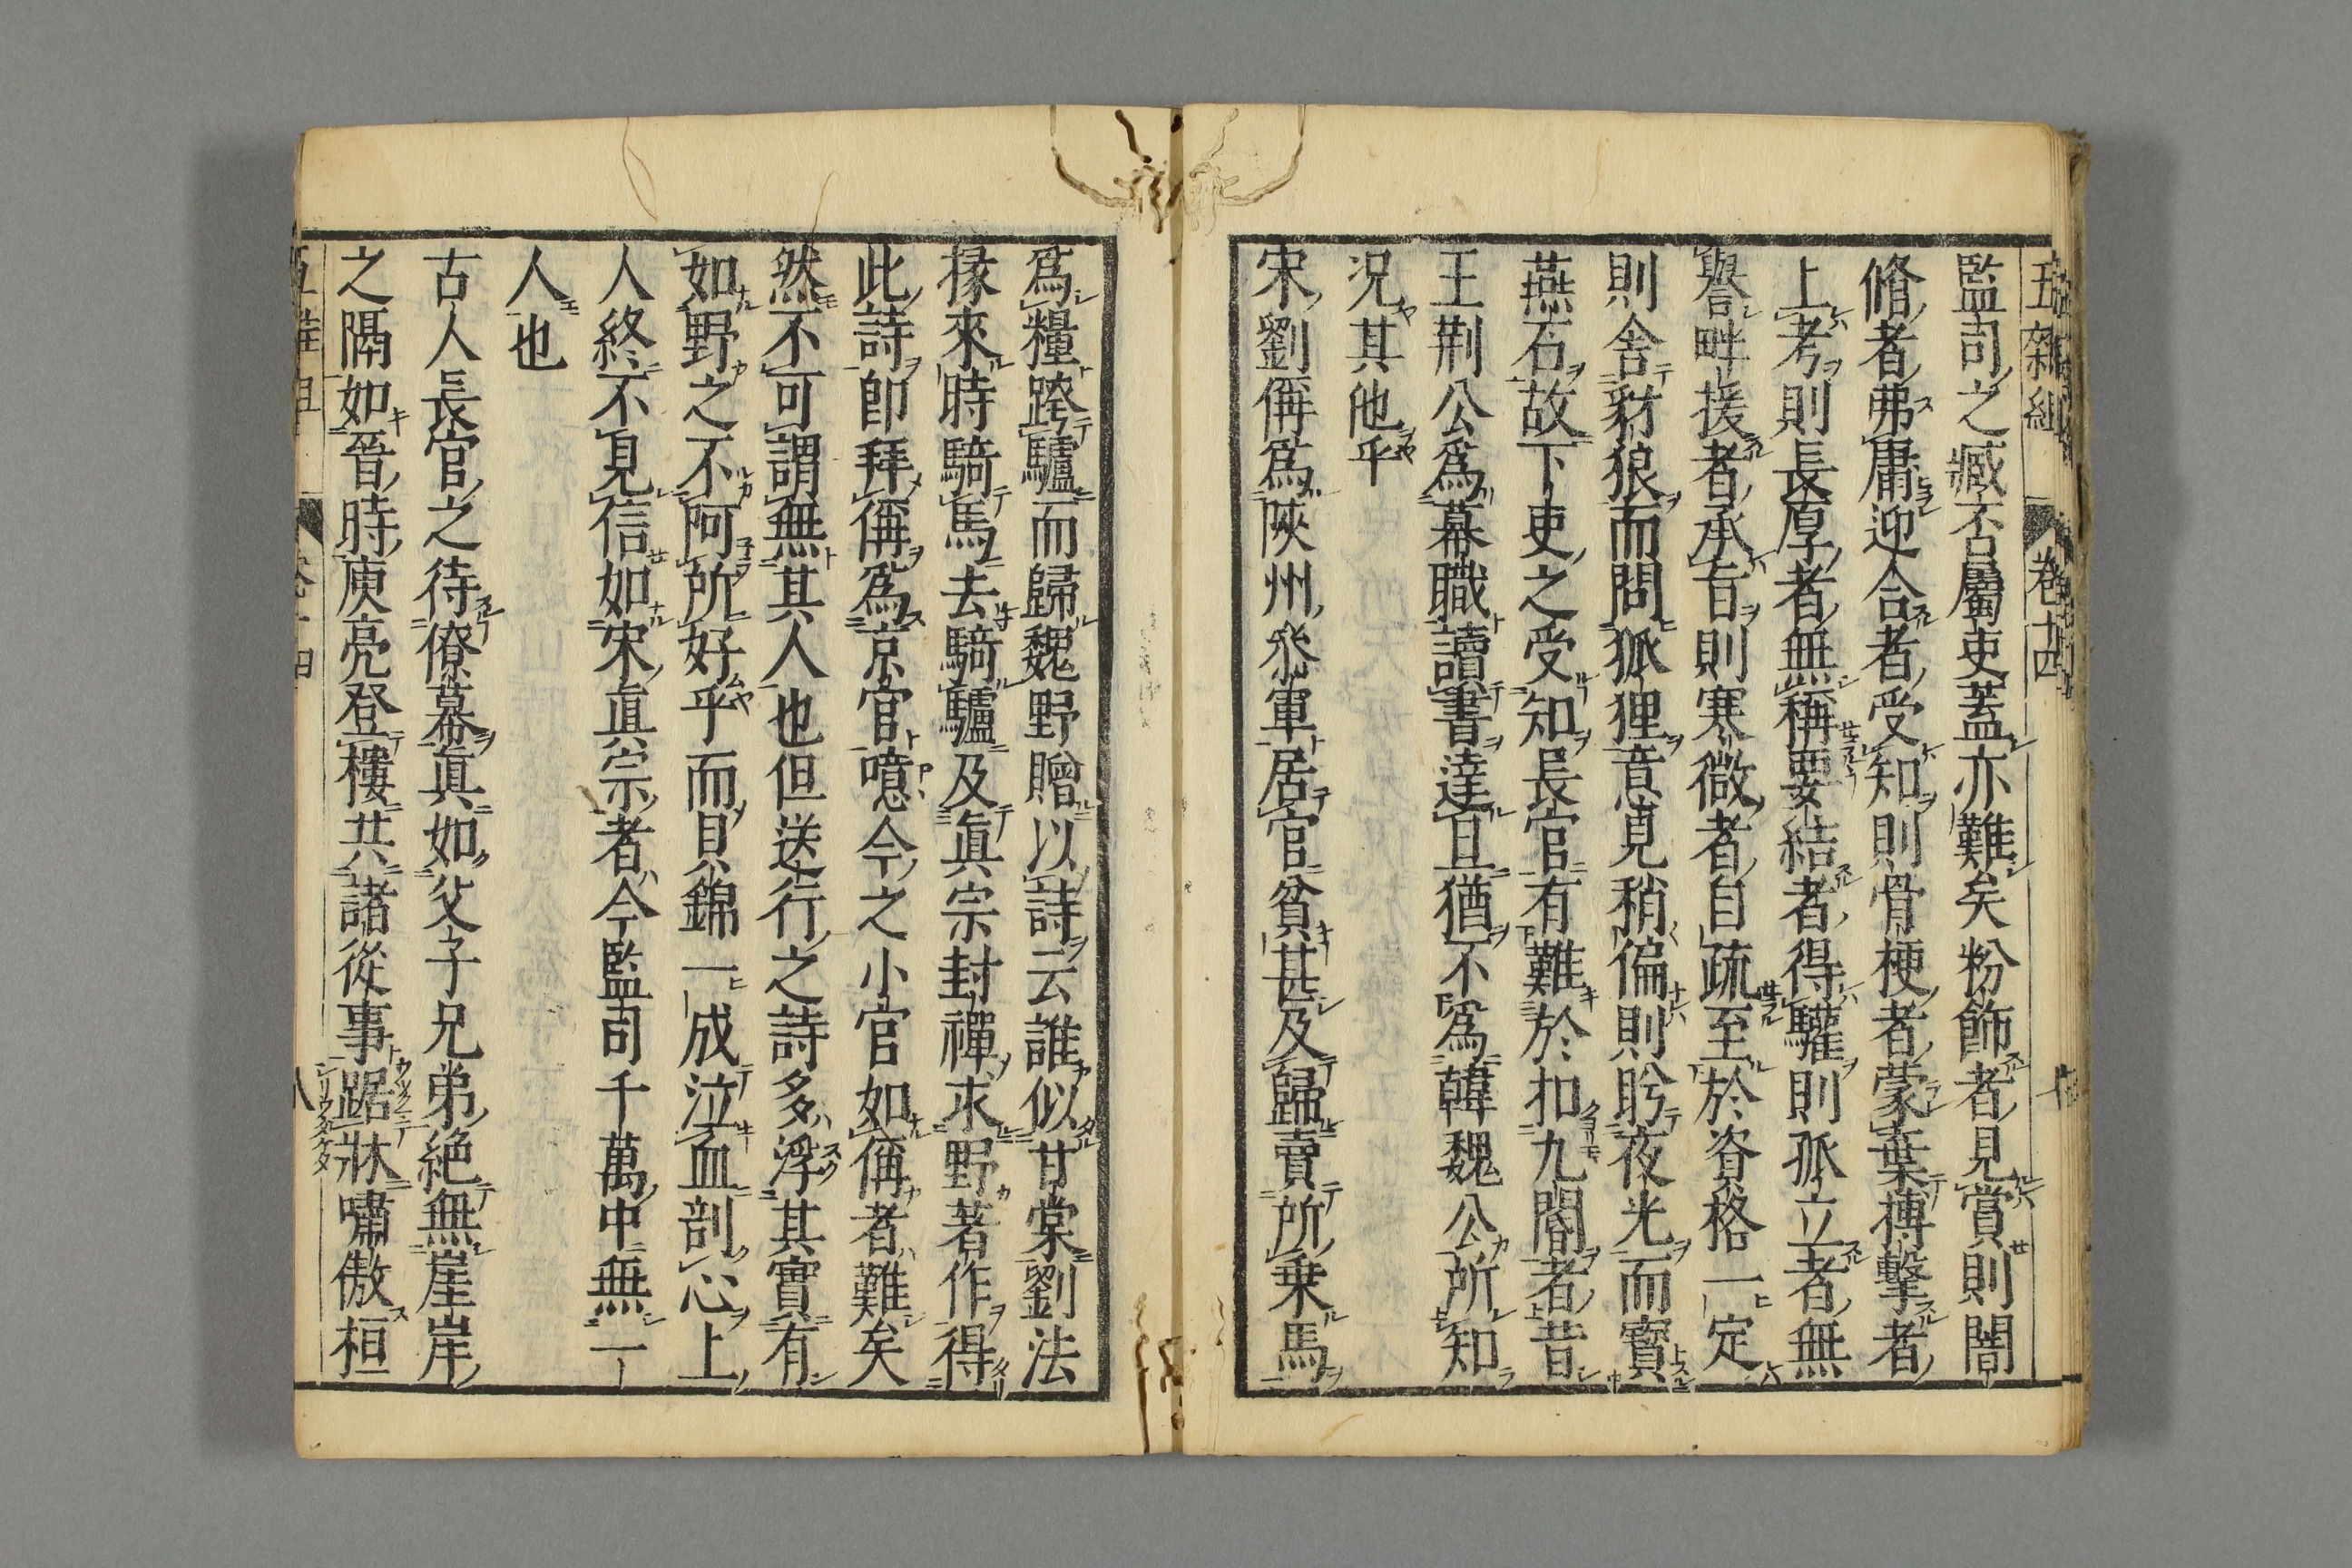 五雜組 卷十四
監司之臧否屬吏蓋亦難矣粉飾者見賞則闇
脩者弗庸迎合者受知則骨梗者蒙棄摶擊者
上考則長厚者無稱要結者得驩則孤立者無
譽畔援者承旨則寒微者自疏至於資格一定
則舍豺狼而問狐狸意見稍偏則盻夜光而寶
燕石故下吏之受知長官有難於扣九閽者昔
王荆公爲幕職讀書達旦猶不爲韓魏公所知
況其他乎
宋劉偁爲陝州叅軍居官貧甚及歸賣所乗馬
爲糧跨驢而歸魏野贈以詩云誰似甘棠劉法
掾來時騎馬去騎驢及眞宗封禪求野著作得
此詩即拜偁爲京官噫今之小官如偁者難矣
然不可謂無其人也但送行之詩多浮其實有
如野之不阿所好乎而貝錦一成泣血剖心上
人終不見信如宋眞宗者今監司千萬中無一
人也
古人長官之待僚幕眞如父子兄弟絶無崖岸
之隔如晉時庾亮登樓共諸從事踞牀嘯傲桓
五雜組 卷十四 八